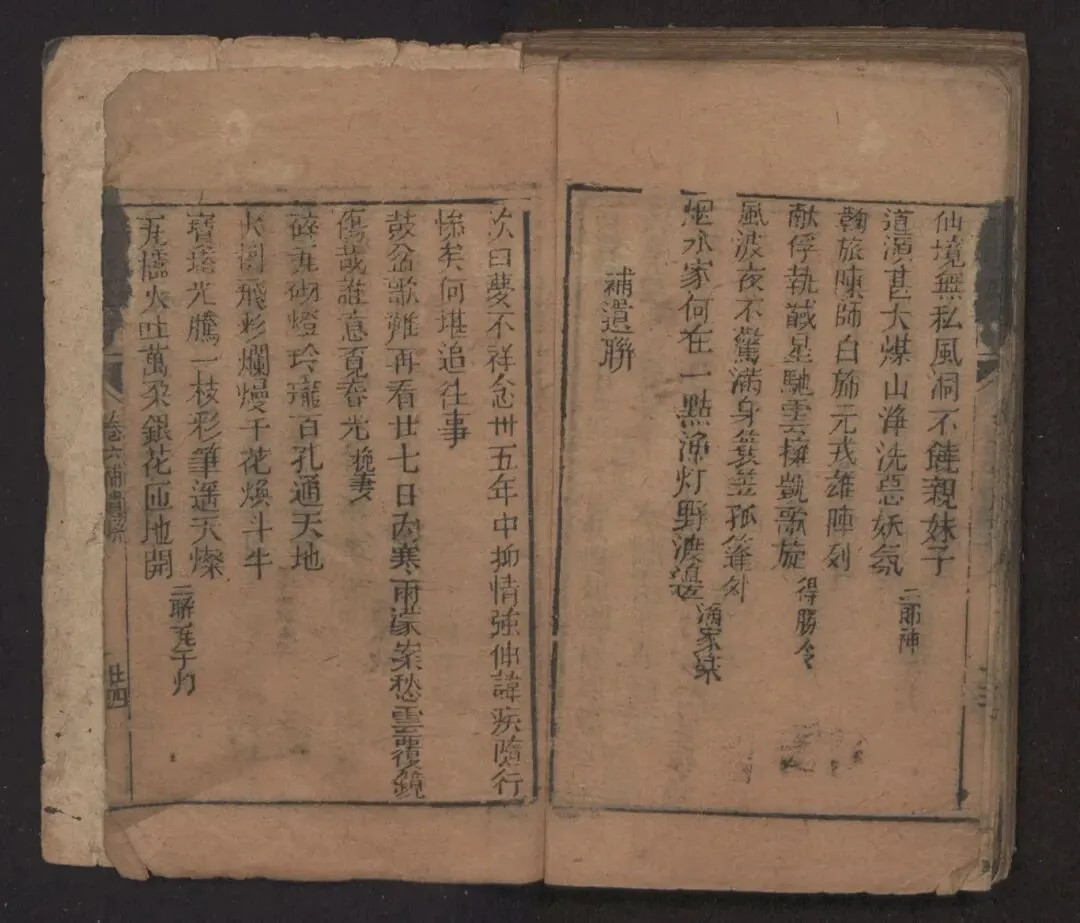 仙境無私風洞不饒親妹子
道源甚大煤山海洗惡妖氛 二郎神
鞠旅陳師白旆元戎雄陣列
献俘執馘星馳雲擁凱歌旋 得勝令
風波夜不驚滿身簑笠孤篷外
烟水家何在一點漁灯野渡邊 漁家樂
補遺聯
次日夢不祥念卅五年中抑情強伸諱疾隨行
慘矣何堪追往事
鼓盆歌难再看廿七日內寒雨濛案愁雲覆鏡
傷哉誰意頁春光 挽妻
碎瓦砌燈玲瓏百孔通天地
火樹飛彩爛熳千花煥斗牛
寶塔光騰一枝彩筆遥天燦
瓦橋火吐萬朶銀花匝地開 三聯瓦子灯
卷六補遺聯
廿四